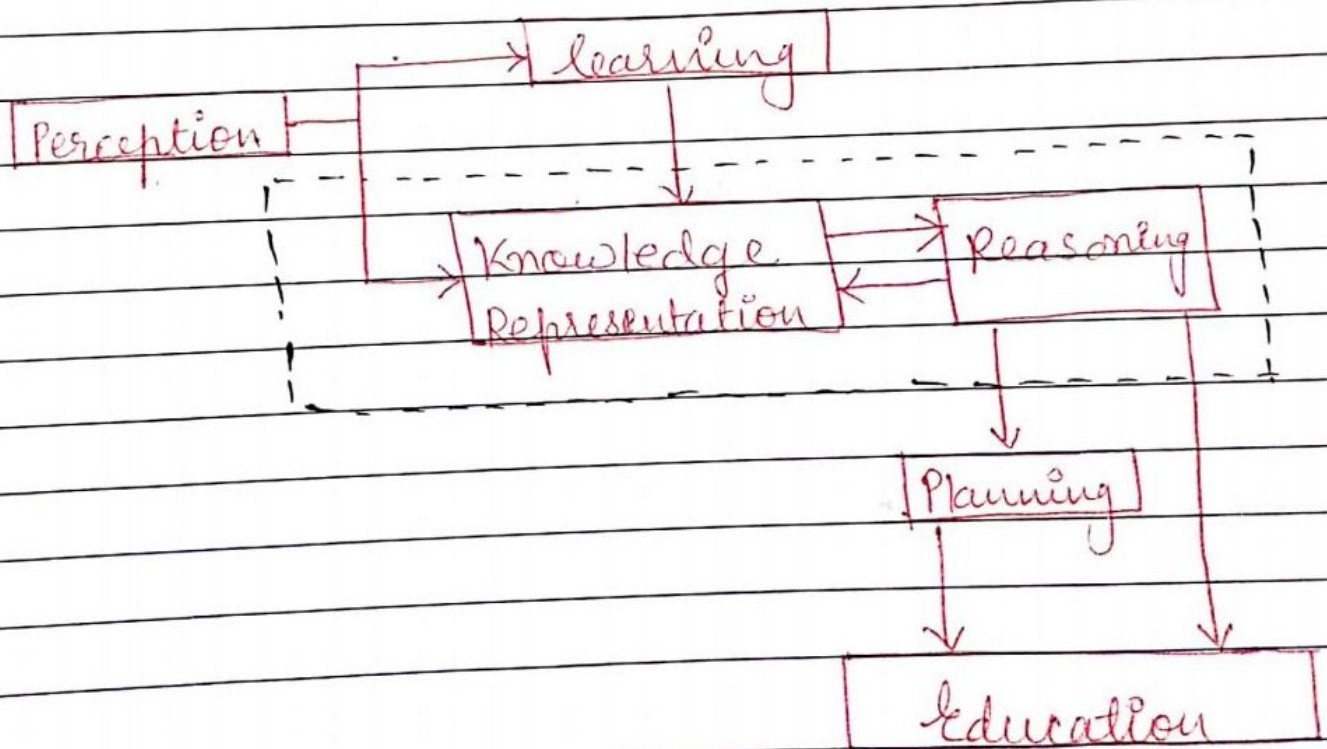 learning
Perception
Knowledge
Representation
Reasoning
Planning
Education